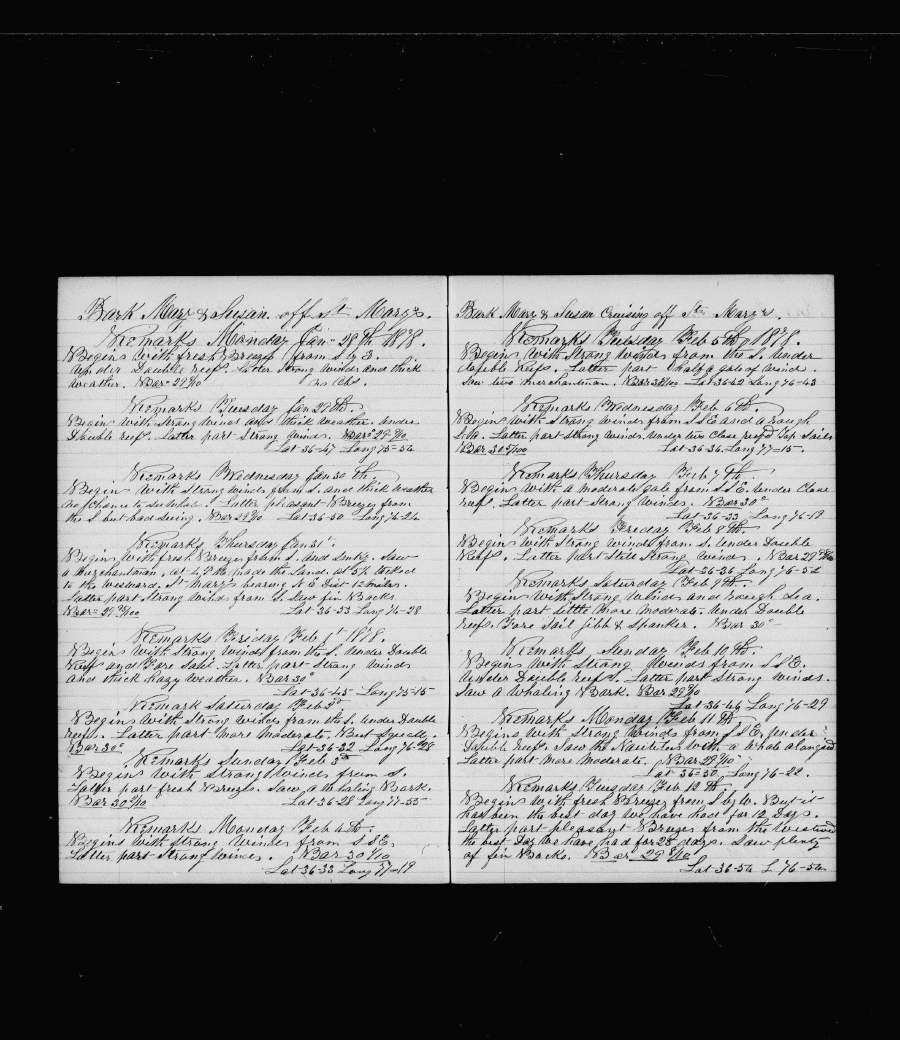 Bark Mary & Susan. off St Marys.
Remarks Monday Jan - 28th 1878.
Begins with fresh Breeze from S by E.
Under Double reef. Latter Strong winds and thick
weather. Bar = 29 9/10 no Obs.
Remarks Tuesday Jan 29th.
Begins with Strong winds and thick weather. under
Double reef. Latter part Strong winds. Bar = 29 9/10
Lat 36-47 Long 75-54
Remarks Wednesday Jan 30th
Begins with Strong winds from S. and thick weather
no chance to see whale. Latter pleasant Breeze from
the S but bad seeing. Bar 29 9/10 Lat 36-50 Long 76-24
Remarks Thursday Jan 31st.
Begins with fresh Breeze from S. and Smky. Saw
a Merchantman, at 4 P.M. made the Land. at 5½ Wked
to the westward. St Marys bearing N E Dist 12 miles.
Latter part Strong winds from S. Saw fin Backs
Bar = 29 95/100 Lat 36-53 Long 76-28
Remarks Friday Feb 1st 1878.
Begins with Strong winds from the S. under Double
Reef and Fore Sail. Latter part Strong winds
and thick hazy weather. Bar 30°
Lat-36-45-Long 75-15
Remarks Saturday Feb 2nd
Begins with Strong winds from the S. under Double
reefs. Latter part more moderate. But Squally.
Bar 30° Lat-36-32 Long 76-28
Remarks Sunday Feb 3rd
Begins with Strong winds from S.
Latter part fresh Breeze. Saw a Whaling Bark.
Bar 30 2/10 Lat-36-28 Long 77-55
Remarks Monday Feb 4th.
Begins with Strong winds from S S E.
Latter part Strong winds. Bar-30 1/10
Lat 36-33 Long 77-19
Bark Mary & Susan Cruising off St. Marys.
Remarks Tuesday Feb 5th, 1878.
Begins with Strong winds from the S. under
double Reefs. Latter part half a gale of wind.
Saw two merchantman. Lat-36-42 Long 76-43
Remarks Wednesday Feb 6th.
Begins with Strong winds from S S E and a rough
Sea. Latter part Strong winds, under two Close reef'd Top Sails
Bar 30 5/100 Lat-36-36. Long 77-15.
Remarks Thursday Feb 7th
Begins with a moderate gale from S S E. under Close
reef. Latter part Strong winds. Bar 30°
Lat-36-33 Long 76-19
Remarks Friday Feb 8th.
Begins with Strong winds from S. under Double
Reef. Latter part Still Strong winds. Bar 29
Lat-36-36 Long 76-52
Remarks Saturday Feb 9th.
Begins with Strong winds and rough Sea.
Latter part little more moderate. under Double
reefs. Fore Sail jibb & Spanker. Bar 30°
Remarks Sunday Feb 10th.
Begins with Strong winds from S S E.
under Double reefs. Latter part Strong winds.
Saw a whaling Bark. Bar 29 9/10
Lat-36-46 Long 76-29
Remarks Monday Feb 11th
Begins with Strong winds from S S E. under
Double reef. Saw the Nautilus with a whale alongside
Latter part more moderate. Bar 29 9/10
Lat 36=50 Long 76-22.
Remarks Tuesday Feb 12th.
Begins with fresh Breeze from S by W. But it
has been the best day we have had for 12 Days.
Latter part pleasant Breeze from the Westward
the best Day we have had for 28 days. Saw plenty
of fin Backs. Bar 29 8/10
Lat 36-54 L 76-54